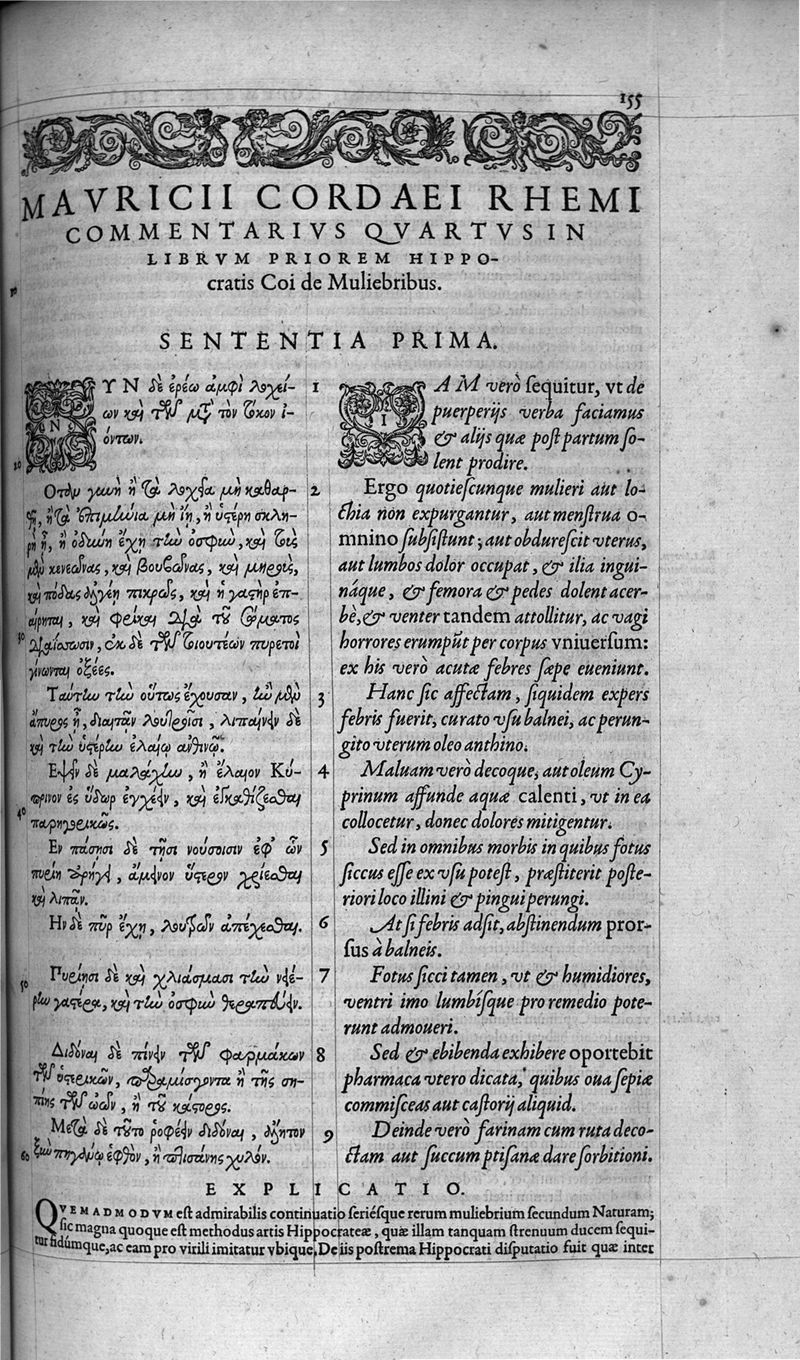 155
MAVRICII CORDAEI RHEMI
COMMENTARIVS QVARTVS IN
LIBRVM PRIOREM HIPPO-
cratis Coi de Muliebribus.
SENTENTIA PRIMA.
ΝΥΝ δὲ ἐρέω ἀμφὶ λοχεί-
ων καὶ τῶν μετὰ τὸν τόκον ἰ-
όντων.
Ὁτὰν γυνὴ ἢ τὰ λοχεῖα μὴ καθαρ-
θῇ, ἢ τὰ ἐπιμήνια μὴ ἴῃ, ἢ ὑστέρη σκλη-
ρὴ ᾖ, ἢ ὀδύνη ἔχῃ τὴν ὀσφὺν, καὶ τοὺς
μὲν κενεῶνας, καὶ βουβῶνας, καὶ μηροὺς,
καὶ πόδας ἀλγέῃ πικρῶς, καὶ ἡ γαστὴρ ἐπ-
αίρηται, καὶ φρίκαι διὰ τοῦ σώματος
διαΐσσωσιν, ἐκ δὲ τῶν τοιουτέων πυρετοὶ
γίνωνται ὀξέες.
Ταύτην τὴν οὕτως ἔχουσαν, ἢν μὲν
ἄπυρος ᾖ, διαιτᾶν λουτροῖσι, λιπαίνειν δὲ
καὶ τὴν ὑστέρην ἐλαίῳ ἀνθίνῳ.
Ἑψεῖν δὲ μαλάχην, ἢ ἔλαιον Κύ-
πρινον ἐς ὕδωρ ἐγχεῖν, καὶ ἐγκαθίζεσθαι
παρηγορικῶς.
Ἐν πάσῃσι δὲ τῇσι νούσοισιν ἐφ᾽ ὧν
πυριῆν χρὴ, ἄμεινον ὕστερον χρίεσθαι
καὶ λιπᾶν.
Ἢν δὲ πῦρ ἔχῃ, λουτρῶν ἀπέχεσθαι.
Πυρίῃσι δὲ καὶ χλιάσμασι τὴν νειέ-
ρην γαστέρα, καὶ τὴν ὀσφὺν θεραπεύειν.
Διδόναι δὲ πίνειν τῶν φαρμάκων
τῶν ὑστερικῶν, παραμίσγοντα ἢ τῆς ση-
πίης τῶν ὠῶν, ἢ τοῦ κάστορος.
Μετὰ δὲ τοῦτο ῥοφέειν διδόναι, ἄλητον
ξὺν πηγάνῳ ἑφθὸν, ἢ πτισάνης χυλόν.
10
30
40
50
60
1 IAM verò sequitur, vt de
puerperijs verba faciamus
& alijs quæ post partum so-
lent prodire.
2 Ergo quotiescunque mulieri aut lo-
chia non expurgantur, aut menstrua o-
mnino subsistunt; aut obdurescit vterus,
aut lumbos dolor occupat, & ilia ingui-
náque, & femora & pedes dolent acer-
bè, & venter tandem attollitur, ac vagi
horrores erumpũt per corpus vniuersum:
ex his verò acutæ febres sæpe eueniunt.
3 Hanc sic affectam, siquidem expers
febris fuerit, curato vsu balnei, ac perun-
gito vterum oleo anthino.
4 Maluam verò decoque, aut oleum Cy-
prinum affunde aquæ calenti, vt in ea
collocetur, donec dolores mitigentur.
5 Sed in omnibus morbis in quibus fotus
siccus esse ex vsu potest, præstiterit poste-
riori loco illini & pingui perungi.
6 At si febris adsit, abstinendum pror-
sus à balneis.
7 Fotus sicci tamen, vt & humidiores,
ventri imo lumbísque pro remedio pote-
runt admoueri.
8 Sed & ebibenda exhibere oportebit
pharmaca vtero dicata, quibus oua sepiæ
commisceas aut castorij aliquid.
9 Deinde verò farinam cum ruta deco-
ctam aut succum ptisanæ dare sorbitioni.
EXPLICATIO.
QVEMADMODVM est admirabilis continuatio seriésque rerum muliebrium secundum Naturam;
sic magna quoque est methodus artis Hippocrateæ, quæ illam tanquam strenuum ducem sequi-
tur fidúmque, ac eam pro virili imitatur vbique. De iis postrema Hippocrati disputatio fuit quæ inter